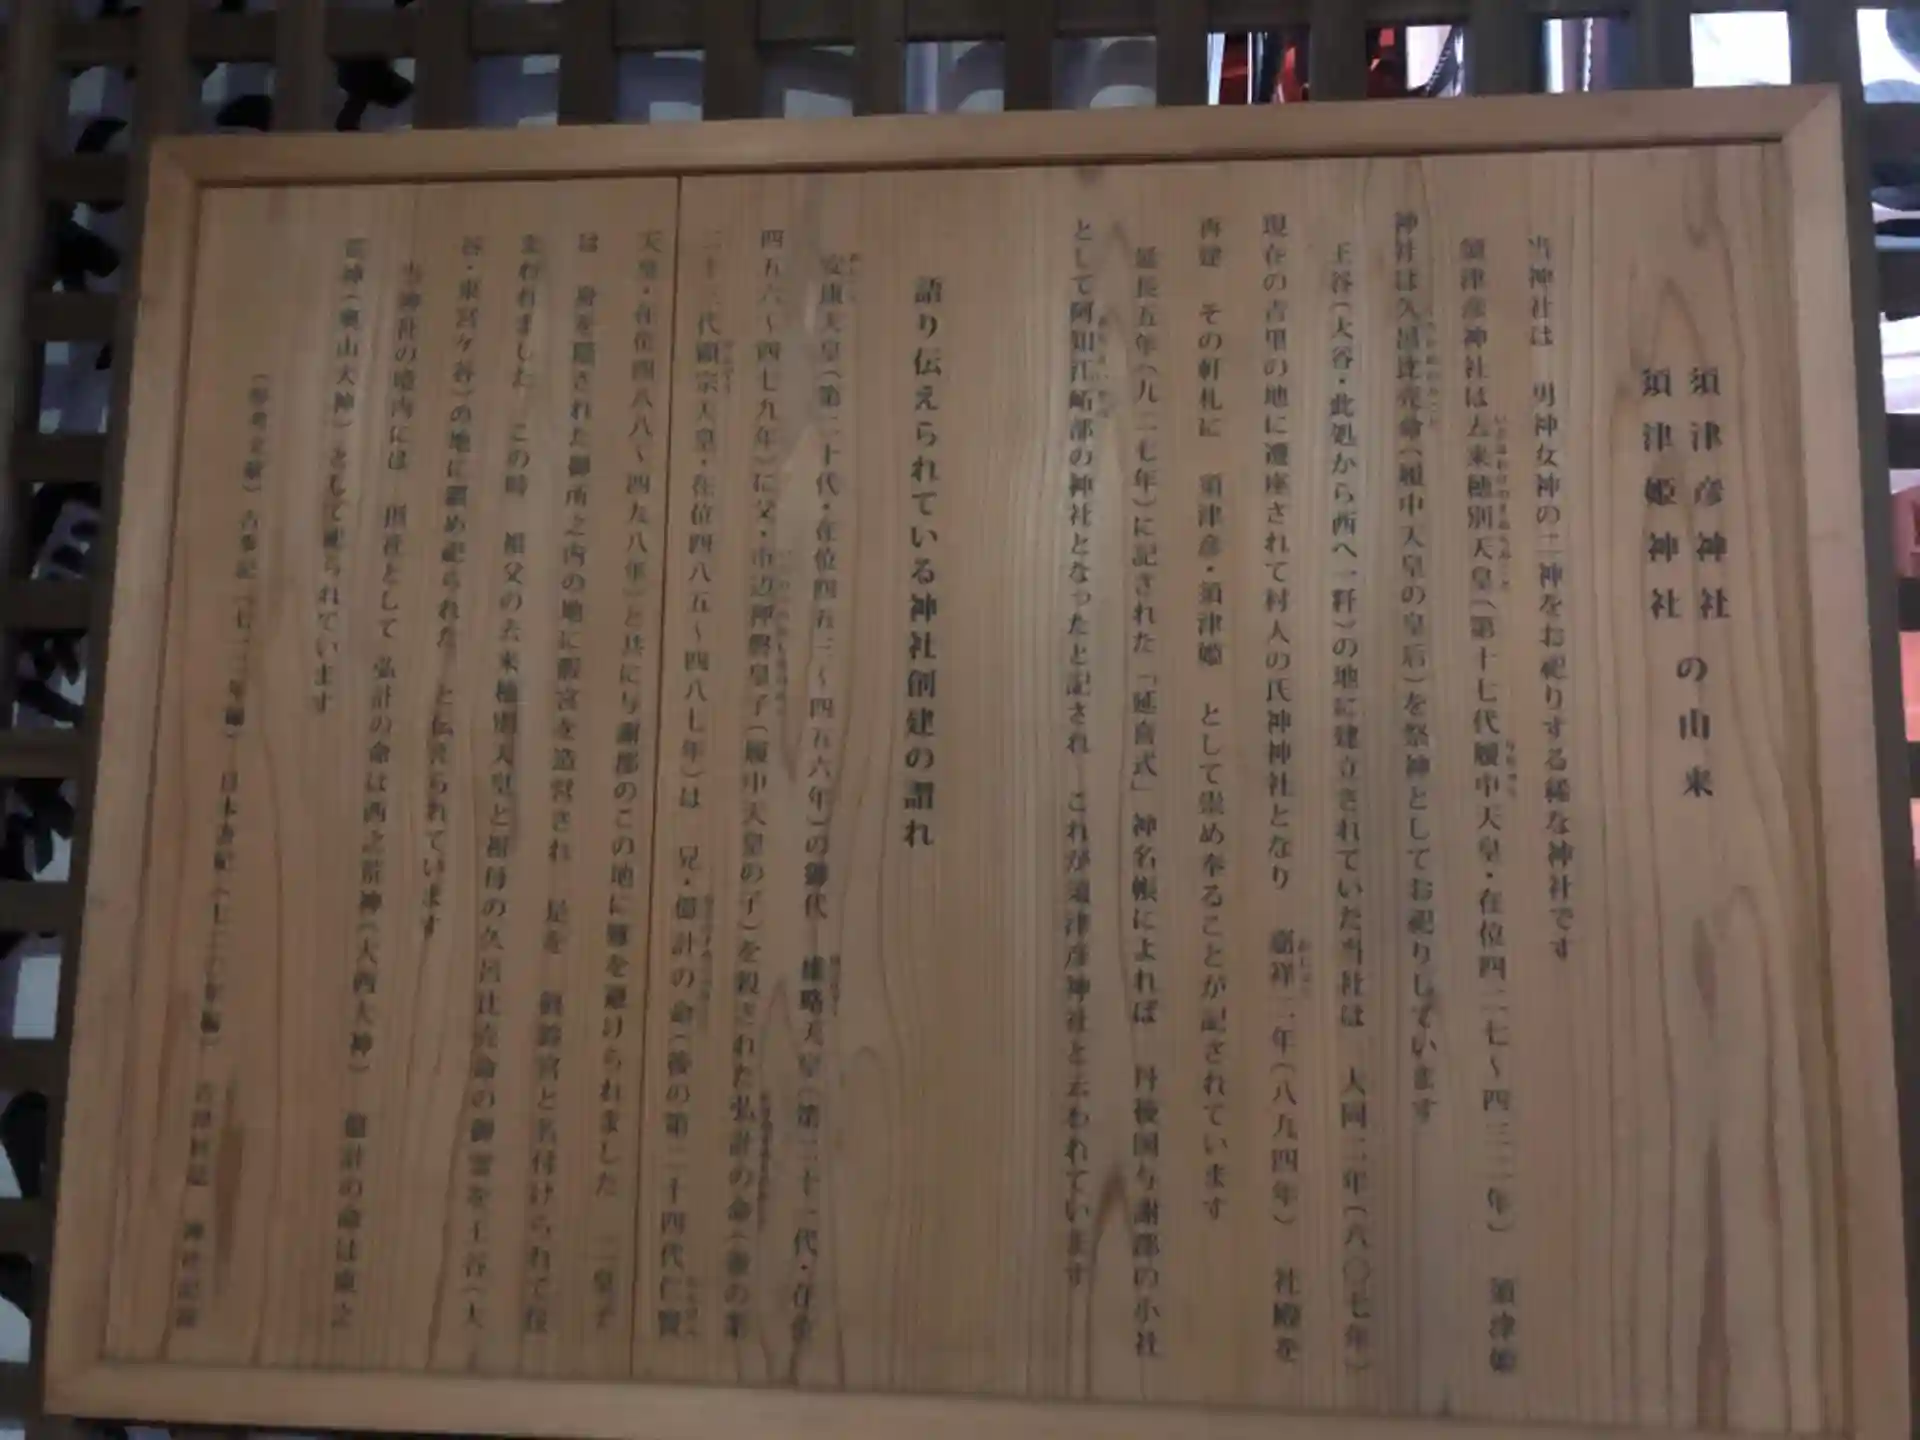 須津彦神社
須津姫神社
の由来
当神社は　男神女神の二神をお祀りする稀な神社です
須津彦神社は去来穂別天皇(第十七代履中天皇・在位四二七～四三二年)　須津姫
神社は久呂比売命(履中天皇の皇后)を祭神としてお祀りしています
王谷(大谷・此処から西へ一粁)の地に建立されていた当社は　大同二年(八〇七年)
現在の吉里の地に遷座されて村人の氏神神社となり　嘉祥二年(八九四年)　社殿を
再建　その軒札に　須津彦・須津姫　として崇め奉ることが記されています
延長五年(九二七年)に記された「延喜式」神名帳によれば　丹後国与謝郡の小社
として阿知江峅部の神社となったと記され　これが須津彦神社と云われています
語り伝えられている神社創建の謂れ
安康天皇(第二十代・在位四五三～四五六年)の御代　雄略天皇(第二十一代・在位
四五六～四七九年)に父・市辺押磐皇子(履中天皇の子)を殺された弘計の命(後の第
二十三代顕宗天皇・在位四八五～四八七年)は　兄・億計の命(後の第二十四代仁賢
天皇・在位四八八～四九八年)と共に与謝郡のこの地に難を避けられました　二皇子
は　身を隠された御所之内の地に假宮を造営され　是を　宮と名付けられて住
まわれました　この時　祖父の去来穂別天皇と祖母の久呂比売命の御霊を王谷(大
谷・東宮ケ谷)の地に鎮め祀られた　と伝えられています
当神社の境内には　摂社として　弘計の命は西之荒神(大西大神)　億計の命は東之
荒神(奥山大神)として祀られています
(参考文献)古事記(七一二年編)　日本書紀(七二〇年編)　吉津村誌　神社記録